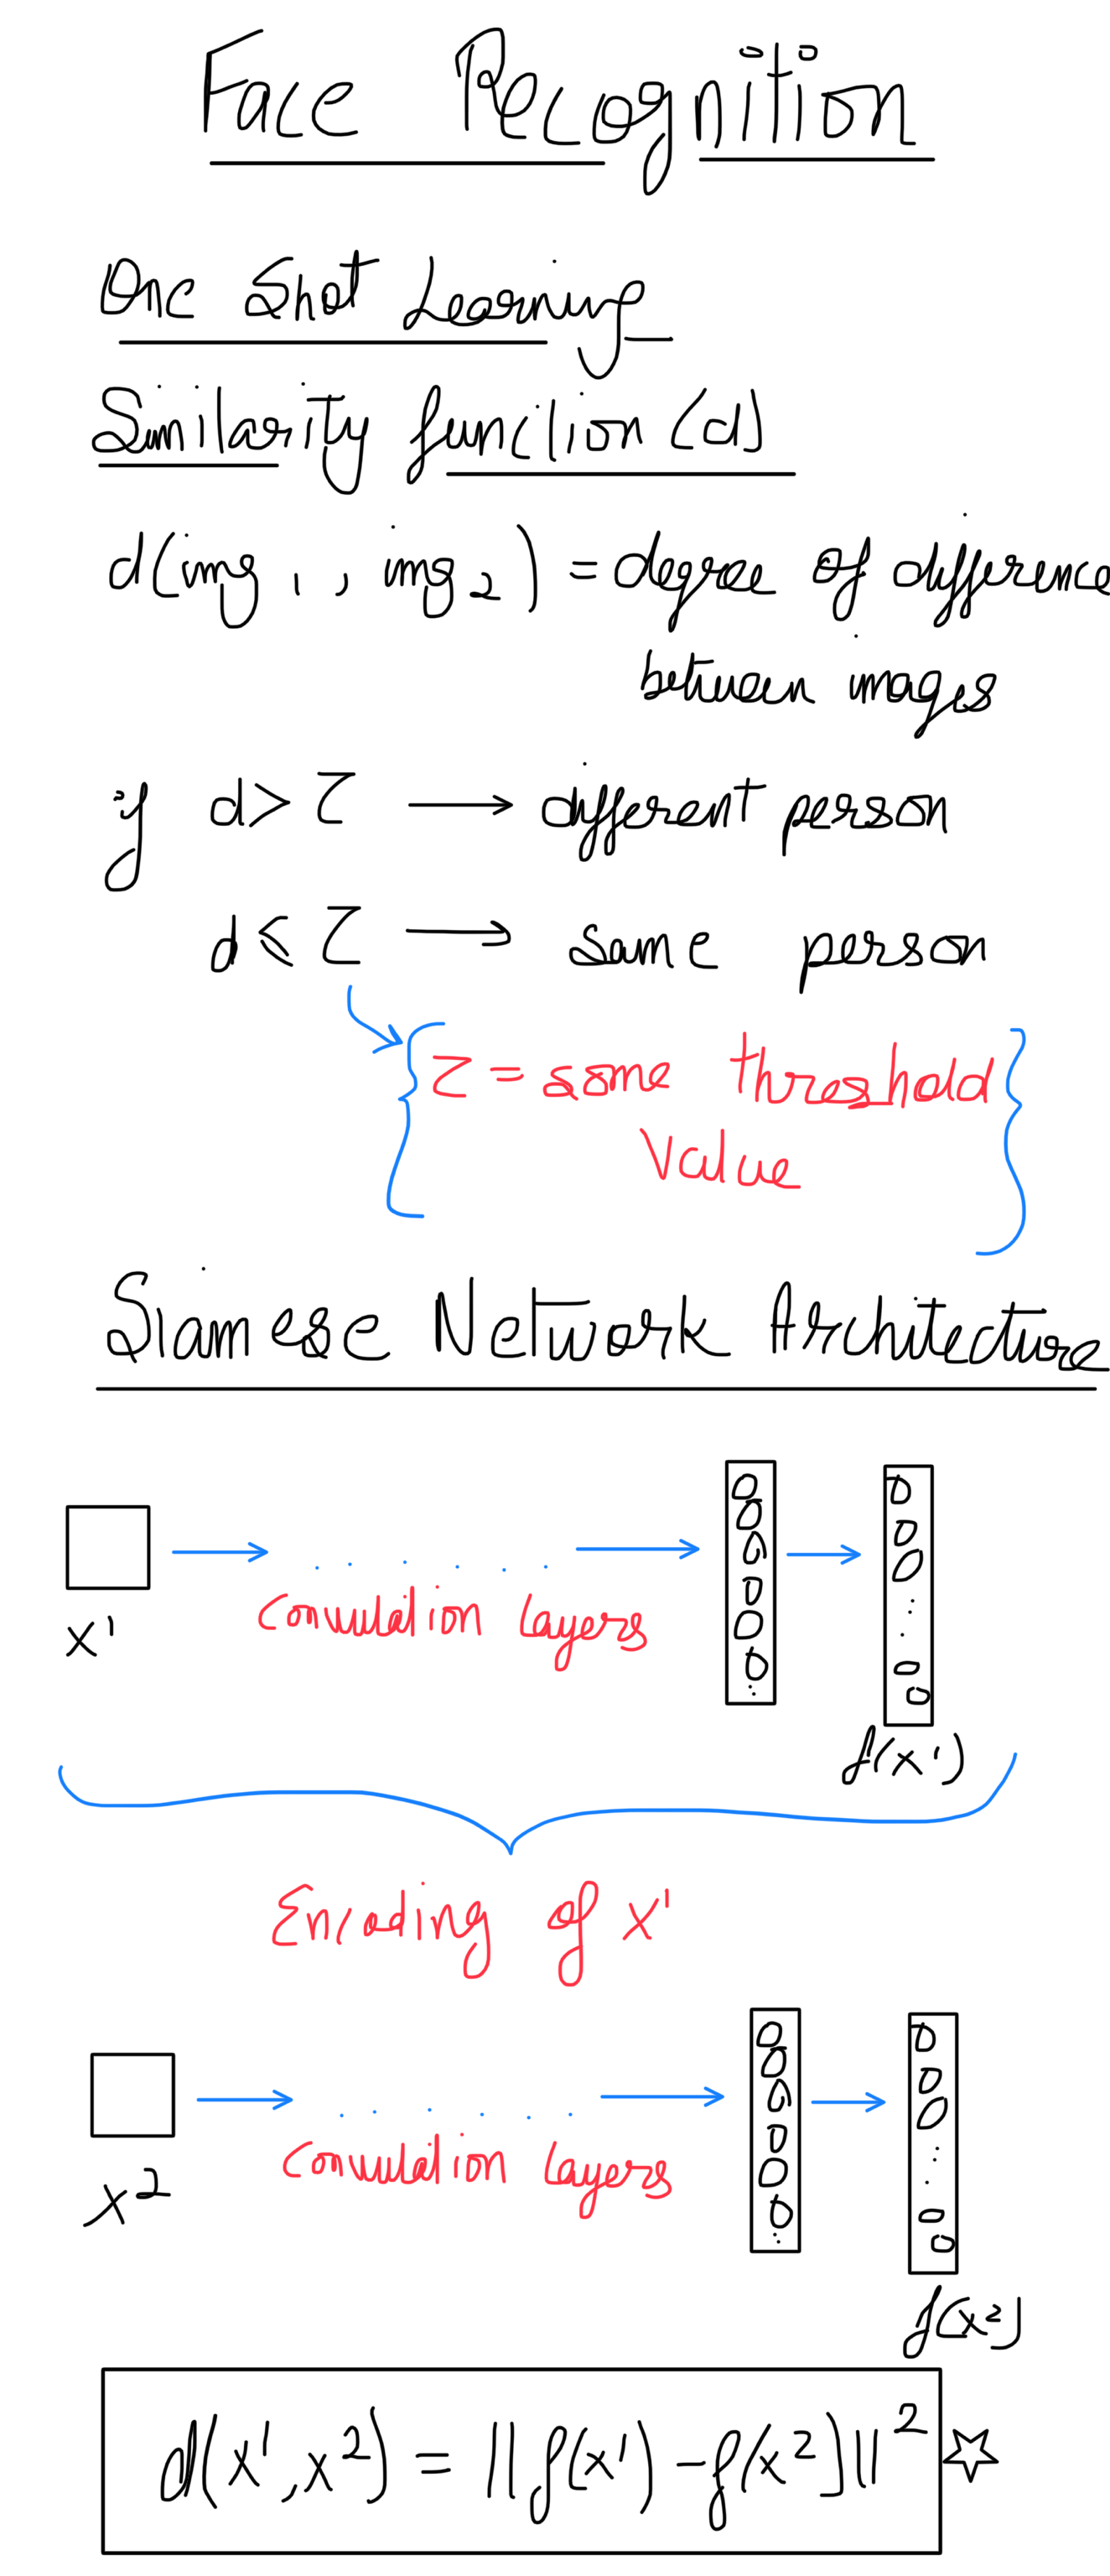 Face Recognition
One Shot Learning
Similarity function (d)
d(img 1, img 2) = degree of difference
between images
if d > τ → different person
d < τ → same person
τ = some threshold
value
Siamese Network Architecture
x¹
Convulation Layers
f(x¹)
Encoding of x¹
x²
Convulation Layers
f(x²)
d(x¹, x²) = ||f(x¹) - f(x²)||²